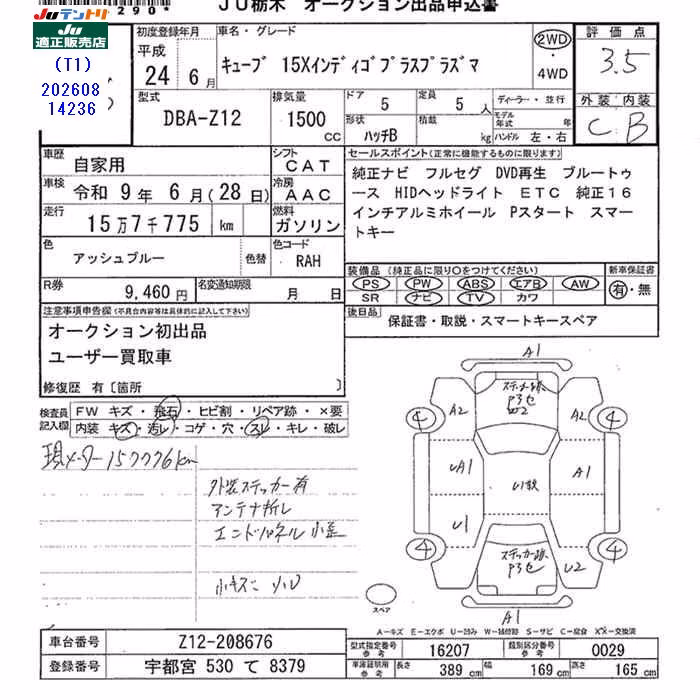 JU栃木 オークション出品申込書
Juテントリ
Ju
適正販売店
290*
(T1)
202608
14236
初度登録年月
平成
24年 6月
車名・グレード
キューブ 15Xインディゴプラスプラズマ
2WD
・4WD
評価点
3.5
外装 内装
C B
型式
DBA-Z12
排気量
1500 CC
ドア 5
定員 5人
ディーラー・並行
形状 ハッチB
積載 kg
モデル年式 年
ハンドル 左・右
車歴
自家用
シフト
CAT
車検
令和 9年 6月(28日)
冷房
AAC
走行
15万7千775 km
燃料
ガソリン
色
アッシュブルー
色替
色コード
RAH
R券
9,460円
名変通知期限
月 日
セールスポイント(正常に機能するものに限ります)
純正ナビ フルセグ DVD再生 ブルートゥ
ース HIDヘッドライト ETC 純正16
インチアルミホイール Pスタート スマー
トキー
装備品(純正品に限り○をつけてください)
PS PW ABS エアB AW
SR ナビ TV カワ
新車保証書
有・無
後日品
保証書・取説・スマートキースペア
注意事項申告欄(不具合内容等は具体的に記入して下さい)
オークション初出品
ユーザー買取車
修復歴 有〔箇所 〕
検査員記入欄
FW キズ・飛石・ヒビ割・リペア跡・×要
内装 キズ・汚レ・コゲ・穴・スレ・キレ・破レ
現メーター157776km
外装ステッカー有
アンテナ折レ
小キズ
A1
A2
A2
ステッカー跡
P3色
U1
A1
A1
4
4
4
4
U1
U2
ステッカー跡
P3色
A1
スペア
A-キズ E-エクボ U-凹み W-補修跡 S-サビ C-腐食 XX-交換済
車台番号
Z12-208676
登録番号
宇都宮 530 て 8379
型式指定番号 参考
16207
類別区分番号 参考
0029
車庫証明用 参考
長さ 389 cm
幅 169 cm
高さ 165 cm